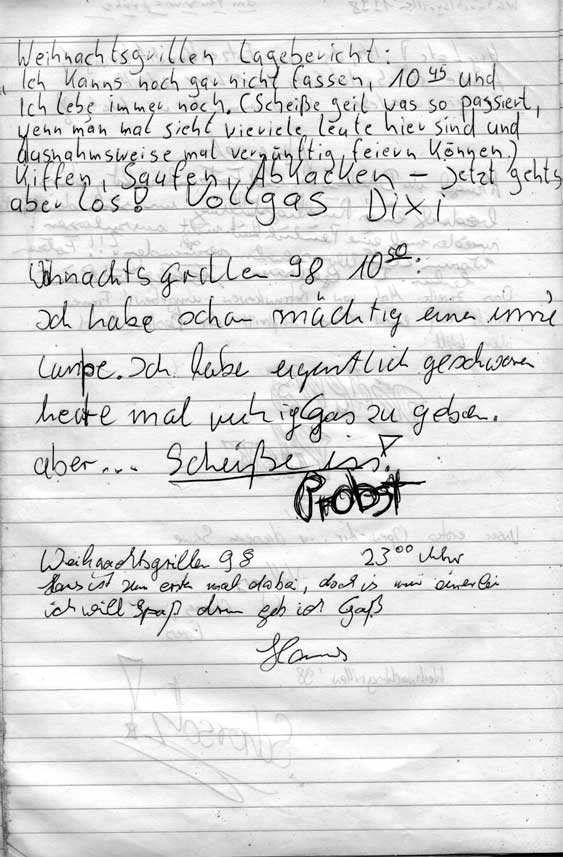 Weihnachtsgrillen Lagebericht:
Ich kanns noch gar nicht fassen, 10 45 und
Ich lebe immer noch. (Scheiße geil was so passiert,
wenn man mal sieht wieviele leute hier sind und
ausnahmsweise mal vernünftig feiern können)
Kiffen, Saufen, Abkacken – Jetzt gehts
aber los! Vollgas Dixi
Weihnachtsgrillen 98 10 50:
Ich habe schon mächtig einen in'ne
Lampe. Ich habe eigentlich geschworen
heute mal ruhig Gas zu geben.
aber... Scheiße iss!
Probst
Weihnachtsgrillen 98 23 00 Uhr
Hans ist zum erste mal dabei, doch is mir einerlei
ich will Spaß drum geb ich Gaß
Hannes